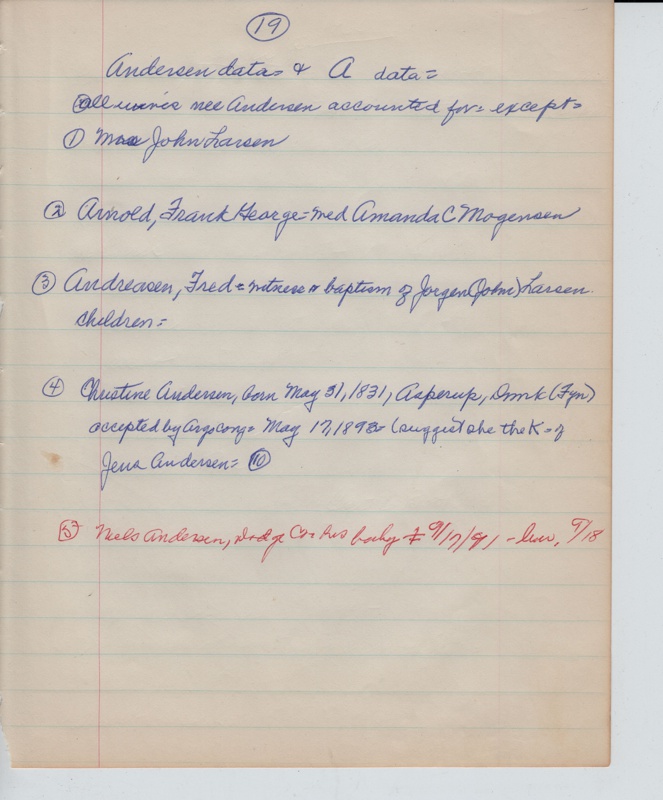 19
Andersen data = & A data =
all wives nee Andersen accounted for = except =
① Mrs John Larsen
② Arnold, Frank George = med Amanda C Mogensen
③ Andreasen, Fred = witness baptism of Jorgen (John) Larsen
children =
④ Christine Andersen, born May 31, 1831, Asperup, Dmk (Fyn)
accepted by Argo cong = May 17, 1898 = (suggest she the K = of
Jens Andersen = ⑩
5 Niels Andersen, Dodge Co = his baby 9/17/91 - bur, 9/18